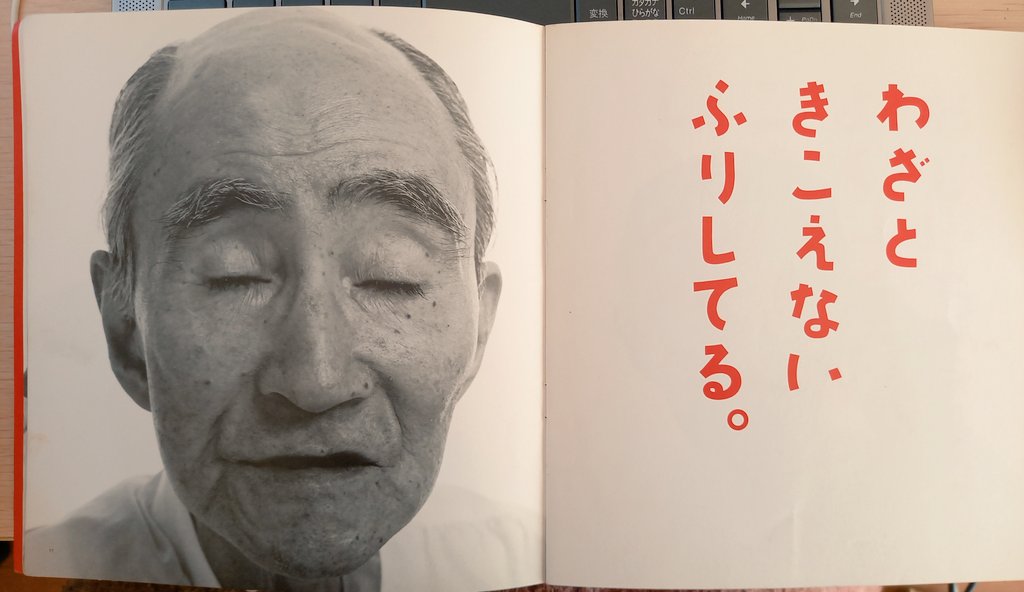 わざと
きこえない
ふりしてる。
変換
カタカナ
ひらがな
Ctrl
Home
End